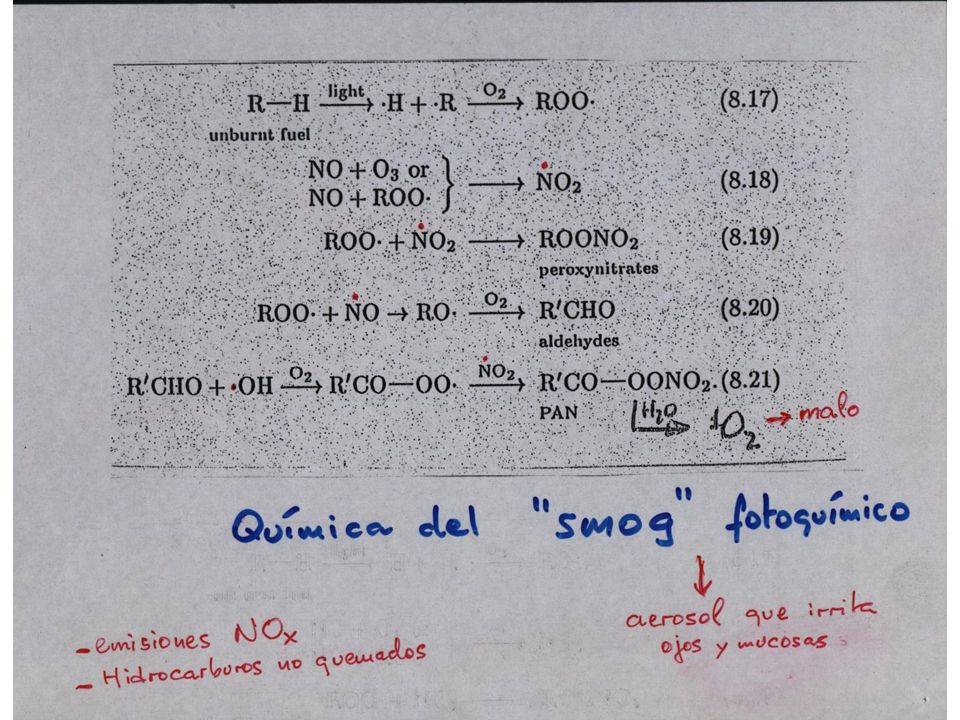 R—H —light→ ·H + ·R —O₂→ ROO· (8.17)
unburnt fuel
NO + O₃ or
NO + ROO· } ⟶ ṄO₂ (8.18)
ROO· + ṄO₂ ⟶ ROONO₂ (8.19)
peroxynitrates
ROO· + ṄO → RO· —O₂→ R′CHO (8.20)
aldehydes
R′CHO + ·OH —O₂→ R′CO—OO· —ṄO₂→ R′CO—OONO₂. (8.21)
PAN
H₂O → ¹O₂ → malo
Química del "smog" fotoquímico
aerosol que irrita
ojos y mucosas
- emisiones NOx
- Hidrocarburos no quemados